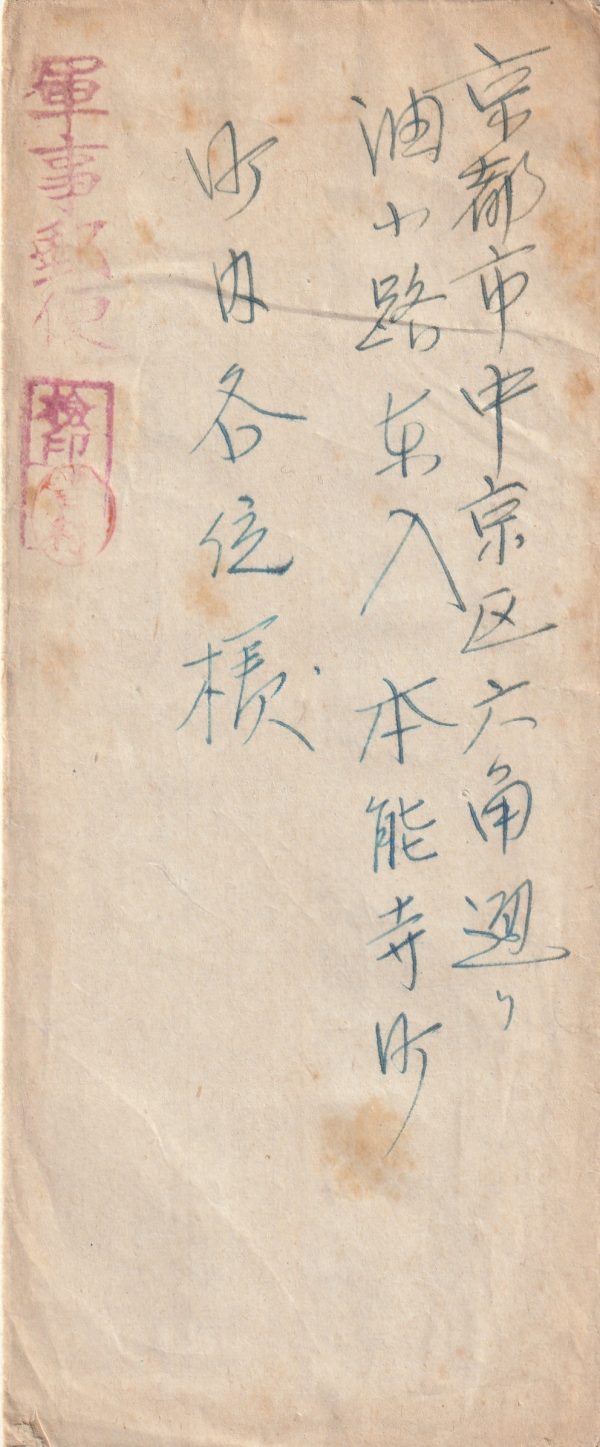 京都市中京区六角通り
油小路东入本能寺町
町内各位様
軍事郵便
検印